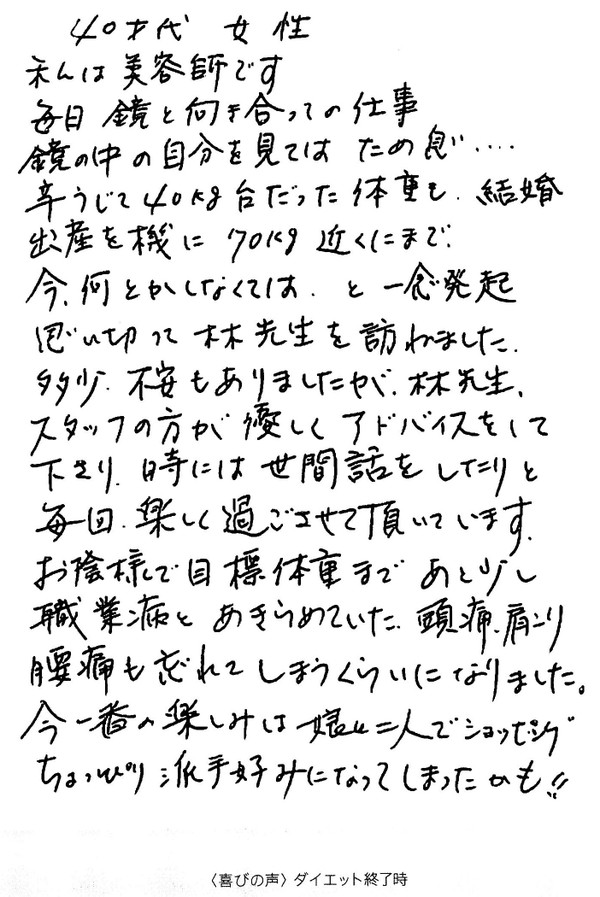 40才代 女性
私は美容師です
毎日 鏡と向き合っての仕事
鏡の中の自分を見ては ため息‥‥
辛うじて40kg台だった体重も、結婚
出産を機に 70kg 近くにまで、
今、何とかしなくては、と 一念発起
思い切って 林先生を訪ねました、
多少、不安もありましたが、林先生、
スタッフの方が 優しく アドバイスをして
下さり、時には 世間話を したりと
毎回、楽しく過ごさせて頂いています、
お陰様で目標体重まで あと少し
職業病と あきらめていた、頭痛、肩こり
腰痛も忘れてしまうくらいになりました。
今一番の楽しみは 娘と二人でショッピング
ちょっぴり 派手好みになってしまったかも!!
〈喜びの声〉ダイエット終了時